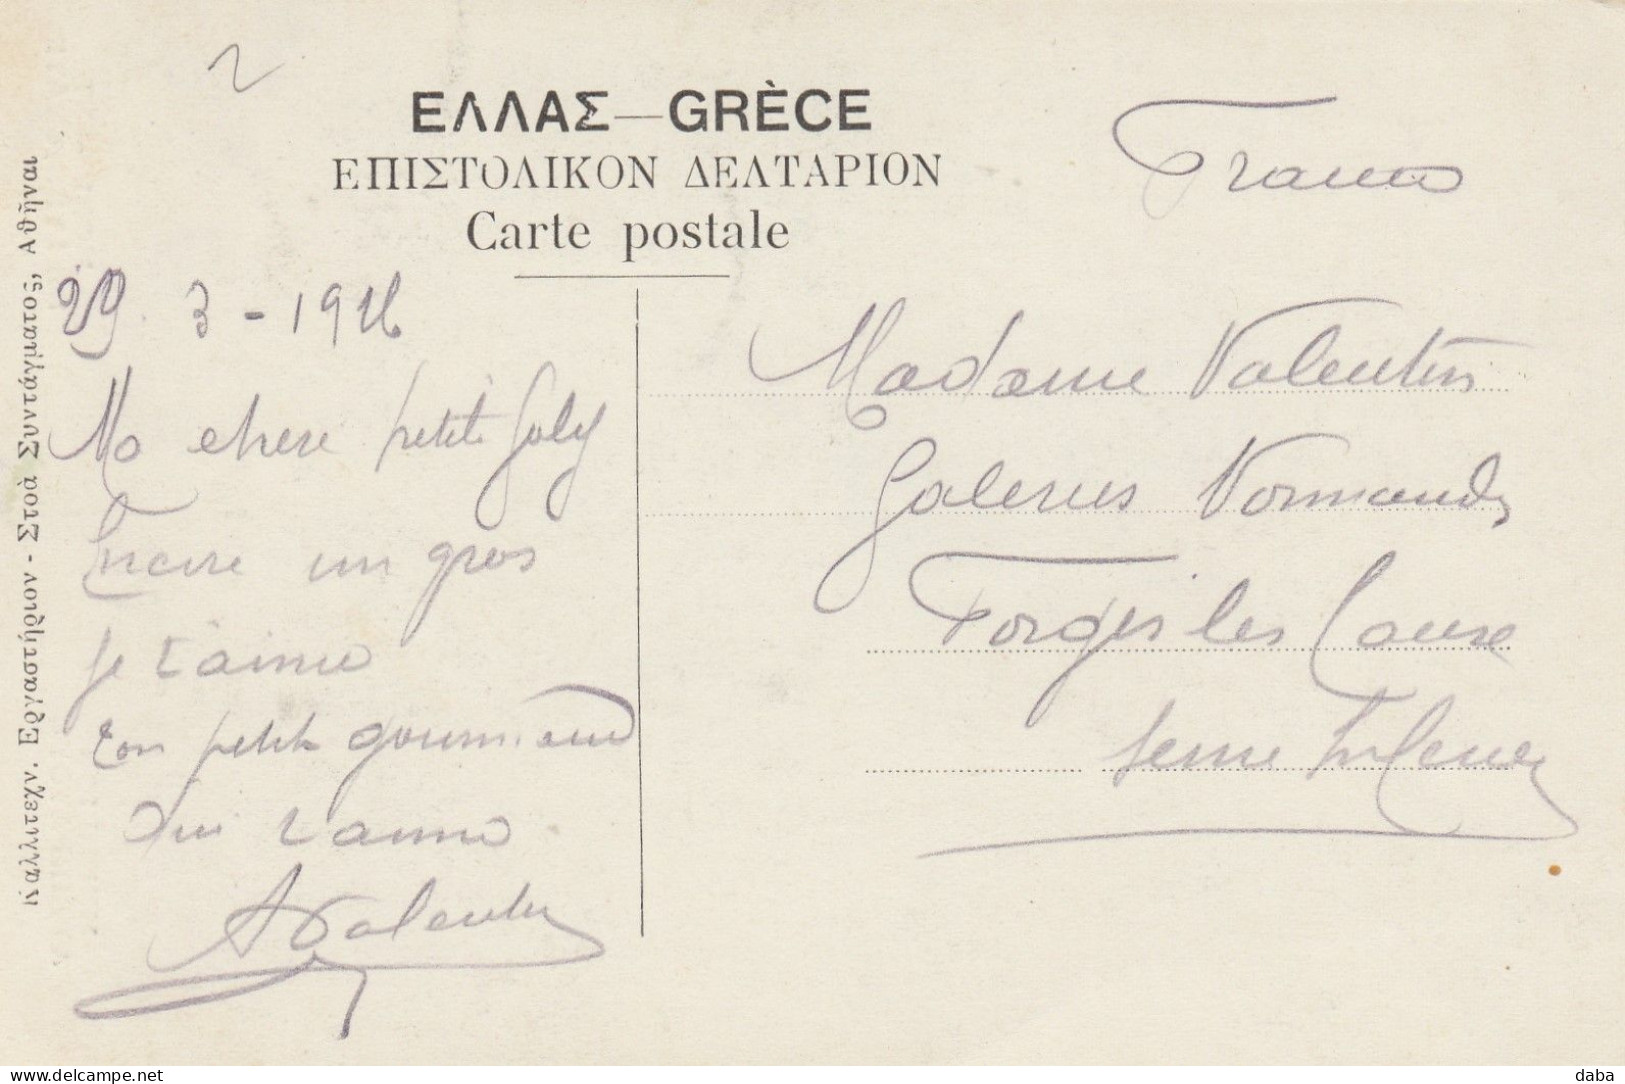 2
ΕΛΛΑΣ—GRÈCE
ΕΠΙΣΤΟΛΙΚΟΝ ΔΕΛΤΑΡΙΟΝ
Carte postale
Καλλιτεχν. Εργαστήριον - Στοά Συντάγματος, Αθήναι
29 3 - 1916
Ma chere petite Gaby
Encore un gros
je t'aime
ton petit gourmand
qui t'aime
A Valentin
France
Madame Valentin
Galeries Normandes
Forges les
Seine Inferieure
delcampe.net
daba